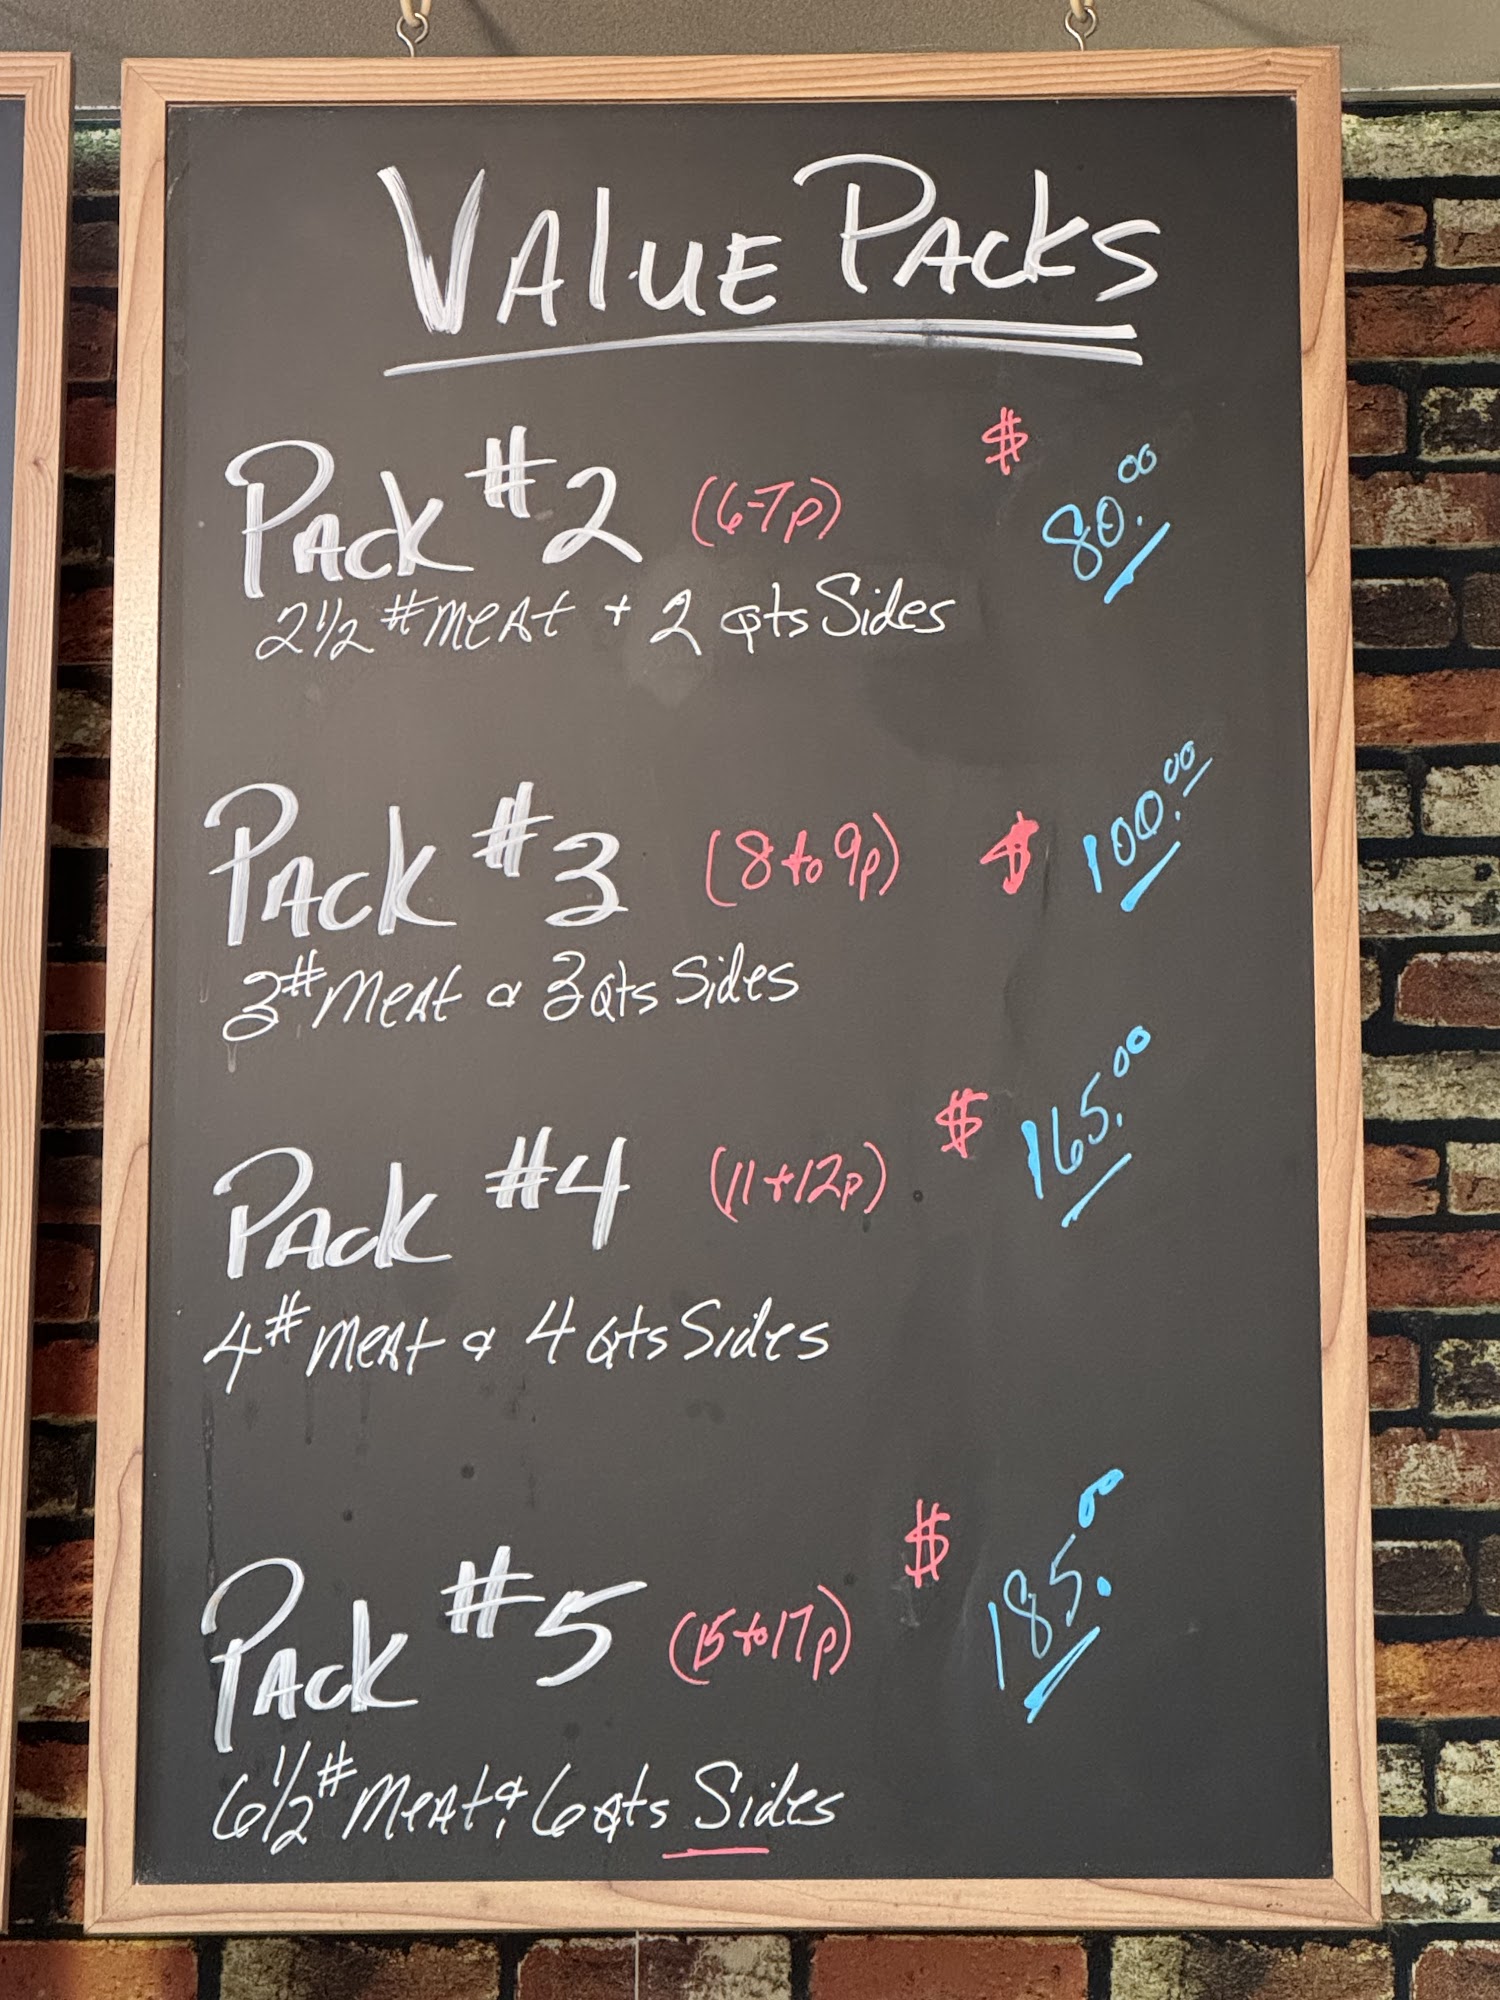 Value Packs
Pack #2 (6-7p) $ 80.00
2 1/2 # Meat + 2 qts Sides
Pack #3 (8 to 9p) $ 100.00
3# Meat & 3 qts Sides
Pack #4 (11+12p) $ 165.00
4# Meat & 4 qts Sides
Pack #5 (15 to 17p) $ 185.00
6 1/2 # Meat & 6 qts Sides